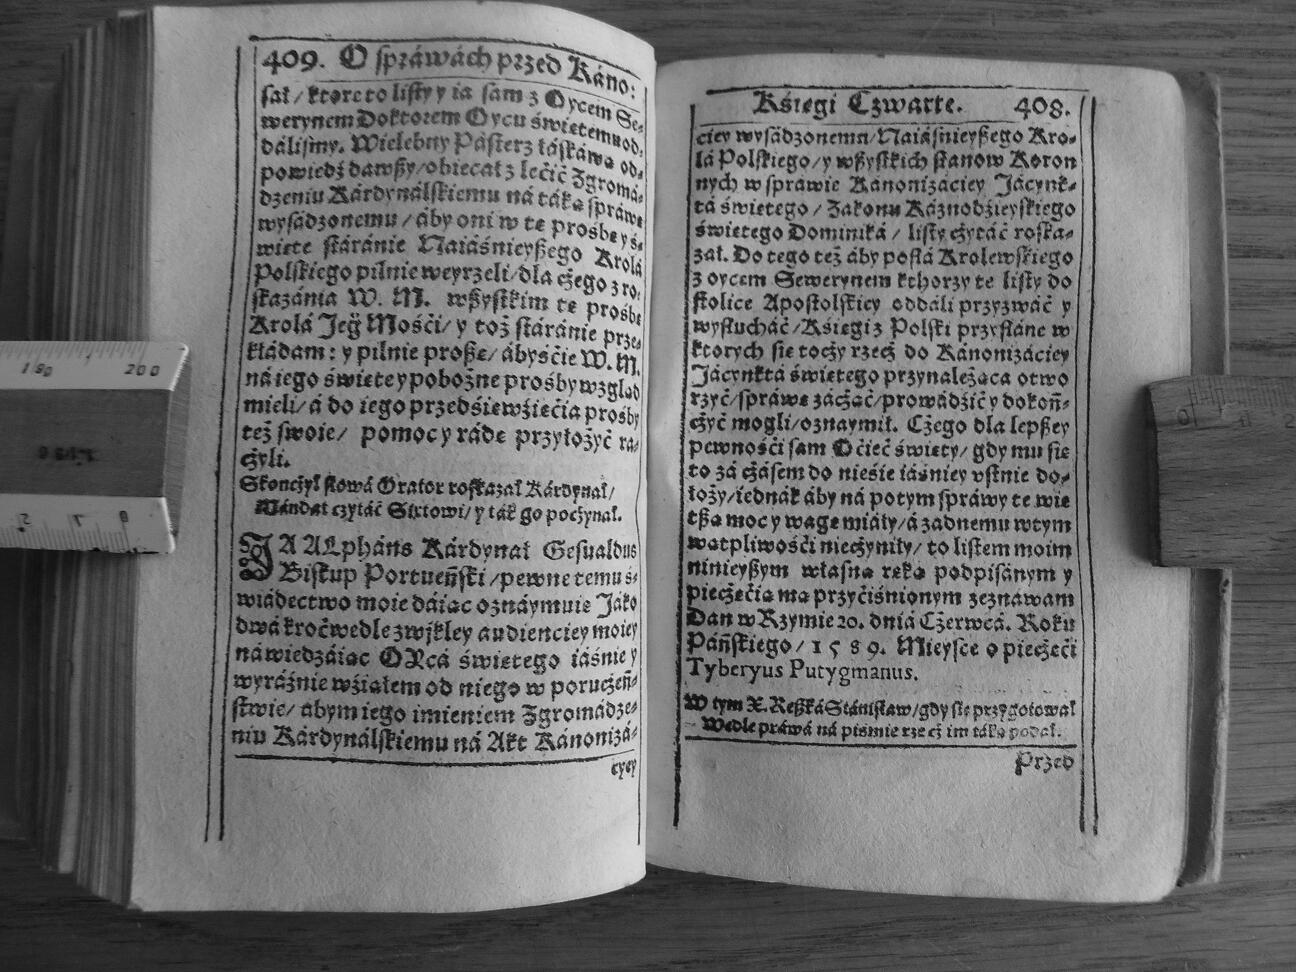 409. O spráwách przed Káno:
sał / ktore to listy y ia sam z Oycem Se-
werynem Doktorem Oycu świetemu od-
dáliśmy. Wielebny Pásterz łáskáwą od-
powiedź dawßy / obiecał z lećić Zgromá-
dzeniu Kárdynálskiemu ná táką spráwę
wysádzonemu / áby oni w tę prośbę y ś-
wiete stáránie Naiáśnieyßego Krolá
Polskiego pilnie weyrzeli / dla cżego z ro-
skazánia W. M. wßystkim tę prośbę
Krolá Jeg̈ Mośći / y toż stáránie prze-
kłádam : y pilnie proßę / ábyśćie W. M.
ná iego święte y pobożne prośby wzgląd
mieli / á do iego przedśiewźiećia prośby
też swoie / pomoc y rádę przyłożyć ra-
cżyli.
Skończył słowá Orator roskazał Kárdynał /
Mándat czytáć Sixtowi / y ták go pocżynał.
JA ALpháns Kárdynał Gesualdus
Biskup Portueński / pewne temu ś-
wiádectwo moie dáiąc oznáymuię Jáko
dwá kroć wedle zwykłey audienciey moiey
náwiedzáiąc OYcá świętego iáśnie y
wyráźnie wźiąłem od niego w porucżeń-
stwie / ábym iego imieniem Zgromádze-
niu Kárdynálskiemu ná Akt Kánonizá-
cyey
Kśięgi Czwarte. 408.
ciey wysádzonemu / Naiáśnieyßego Kro-
lá Polskiego / y wßystkich stanow Koron
nych w sprawie Kánonizáciey Jácynk-
tá świętego / Zakonu Káznodźieyskiego
świętego Dominiká / listy cżytáć roska-
zał. Do tego też áby posłá Krolewskiego
z oycem Sewerynem kthorzy te listy do
stolice Apostolskiey oddáli przyzwáć y
wysłucháć / Kśięgi z Polski przysłáne w
ktorych się tocży rzecż do Kánonizáciey
Jácynktá świętego przynależąca otwo
rzyć / spráwę zácżąć / prowádźić y dokoń-
cżyć mogli / oznaymił. Cżego dla lepßey
pewnośći sam Oćiec święty / gdy mu się
to zá cżásem do nieśie iáśniey vstnie do-
łoży / iednák áby ná potym spráwy te wię
tßą moc y wagę miáły / á żadnemu w tym
wątpliwośći niecżyniły / to listem moim
ninieyßym własną ręką podpisánym y
piecżęćią mą przyćiśnionym zeznawam
Dan w Rzymie 20. dniá Cżerwcá. Roku
Páńskiego / 1589. Mieysce o piecżęći
Tyberyus Putygmanus.
W tym X. Reßká Stánisław / gdy się przygotował
Wedle práwá ná pismie rzecż im táką podał.
Przed